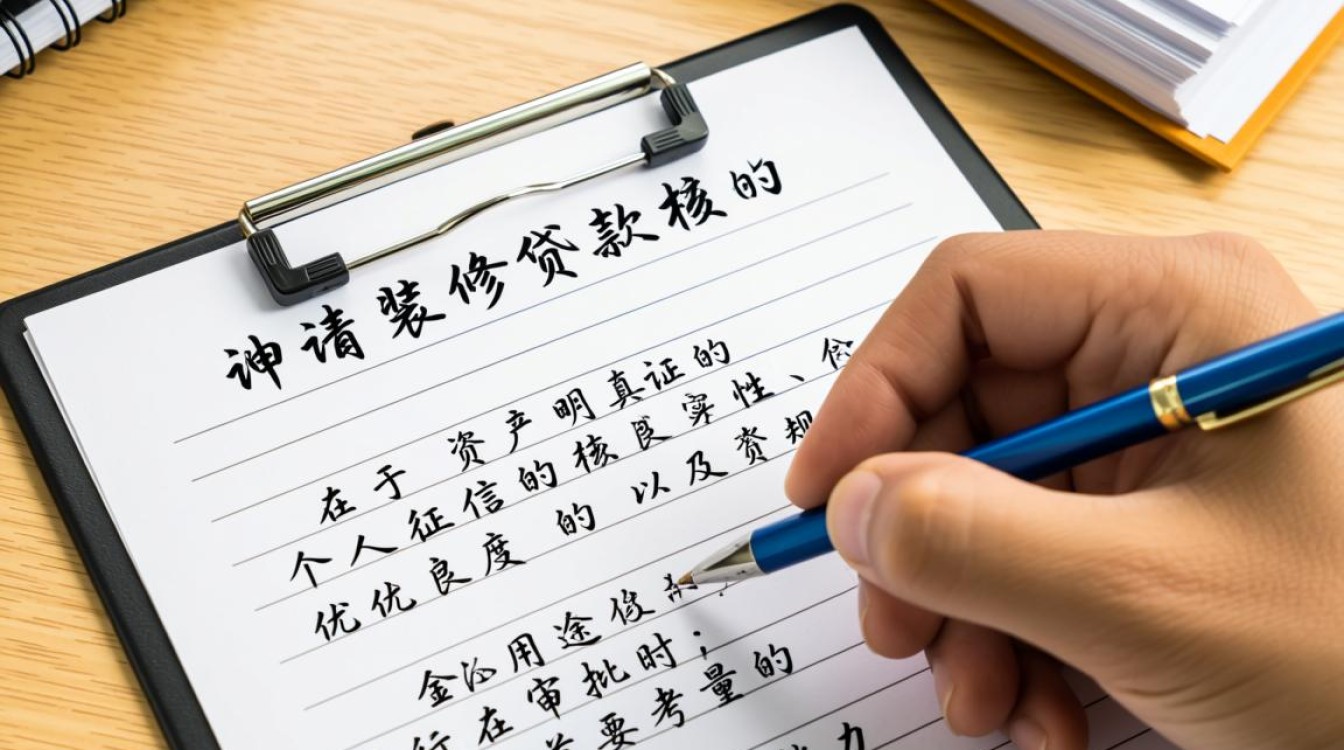 申请装修贷款核的
在于 资产明真证的
个人征信的核良实性、信
优优良度 的 以及资规
金 用途
行在审批时；
要考量的
力